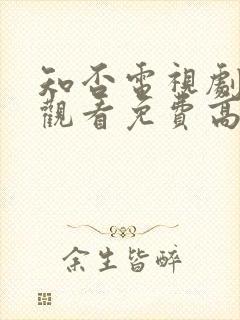 知否電視劇
觀看免費高
余生皆醉